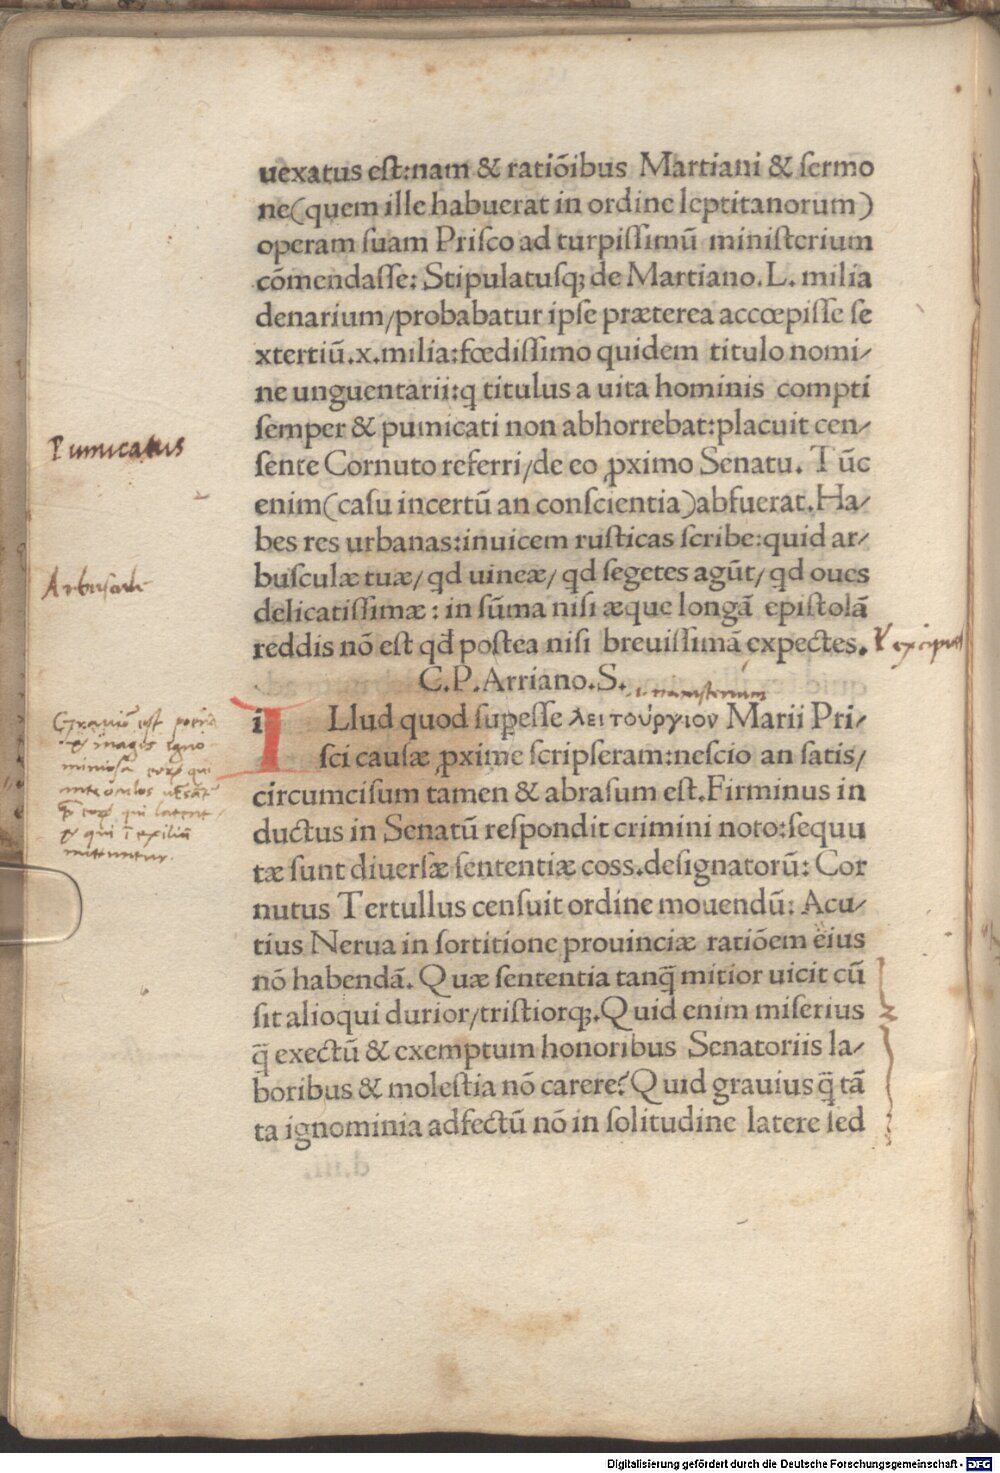 uexatus est:nam & ratiōibus Martiani & sermo
ne(quem ille habuerat in ordine leptitanorum)
operam suam Prisco ad turpissimū ministerium
cōmendasse: Stipulatusq; de Martiano.L. milia
denarium/probabatur ipse præterea accœpisse se
xtertiū.x.milia:fœdissimo quidem titulo nomi/
ne unguentarii:q titulus a uita hominis compti
Pumicatus
semper & pumicati non abhorrebat:placuit cen/
sente Cornuto referri/de eo ꝓximo Senatu. Tūc
enim(casu incertū an conscientia)abfuerat.Ha/
bes res urbanas:inuicem rusticas scribe:quid ar/
busculæ tuæ/ qd uineæ/ qd segetes agūt/ qd oues
delicatissimæ: in sūma nisi æque longā epistolā
reddis nō est qđ postea nisi breuissimā expectes.
C.P.Arriano.S.
i I Llud quod supesse λειτούργιον Marii Pri/
sci causæ ꝓxime scripseram:nescio an satis/
circumcisum tamen & abrasum est.Firminus in
ductus in Senatū respondit crimini noto:sequu
tæ sunt diuersæ sententiæ coss.designatorū: Cor
nutus Tertullus censuit ordine mouendū: Acu/
tius Nerua in sortitione prouinciæ ratiōem eius
nō habendā. Quæ sententia tanq̄ mitior uicit cū
sit alioqui durior/tristiorq;.Quid enim miserius
q̄ exectū & exemptum honoribus Senatoriis la/
boribus & molestia nō carere?Quid grauius q̄ tā
ta ignominia adfectū nō in solitudine latere sed
mittuntur.
Digitalisierung gefördert durch die Deutsche Forschungsgemeinschaft - DFG